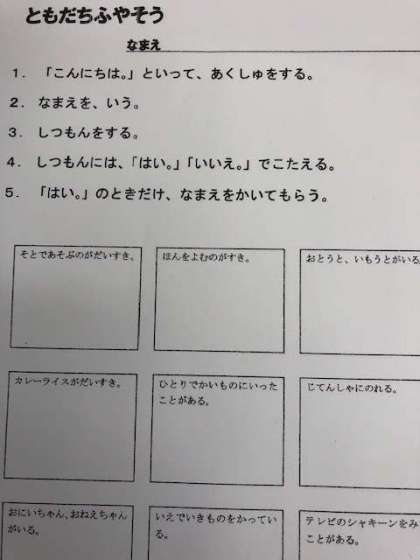 ともだちふやそう
なまえ
1. 「こんにちは。」といって、あくしゅをする。
2. なまえを、いう。
3. しつもんをする。
4. しつもんには、「はい。」「いいえ。」でこたえる。
5. 「はい。」のときだけ、なまえをかいてもらう。
そとであそぶのがだいすき。
ほんをよむのがすき。
おとうと、いもうとがいる
カレーライスがだいすき。
ひとりでかいものにいった
ことがある。
じてんしゃにのれる。
おにいちゃん、おねえちゃん
がいる。
いえでいきものをかってい
る。
テレビのシャキーンをみ
ことがある。